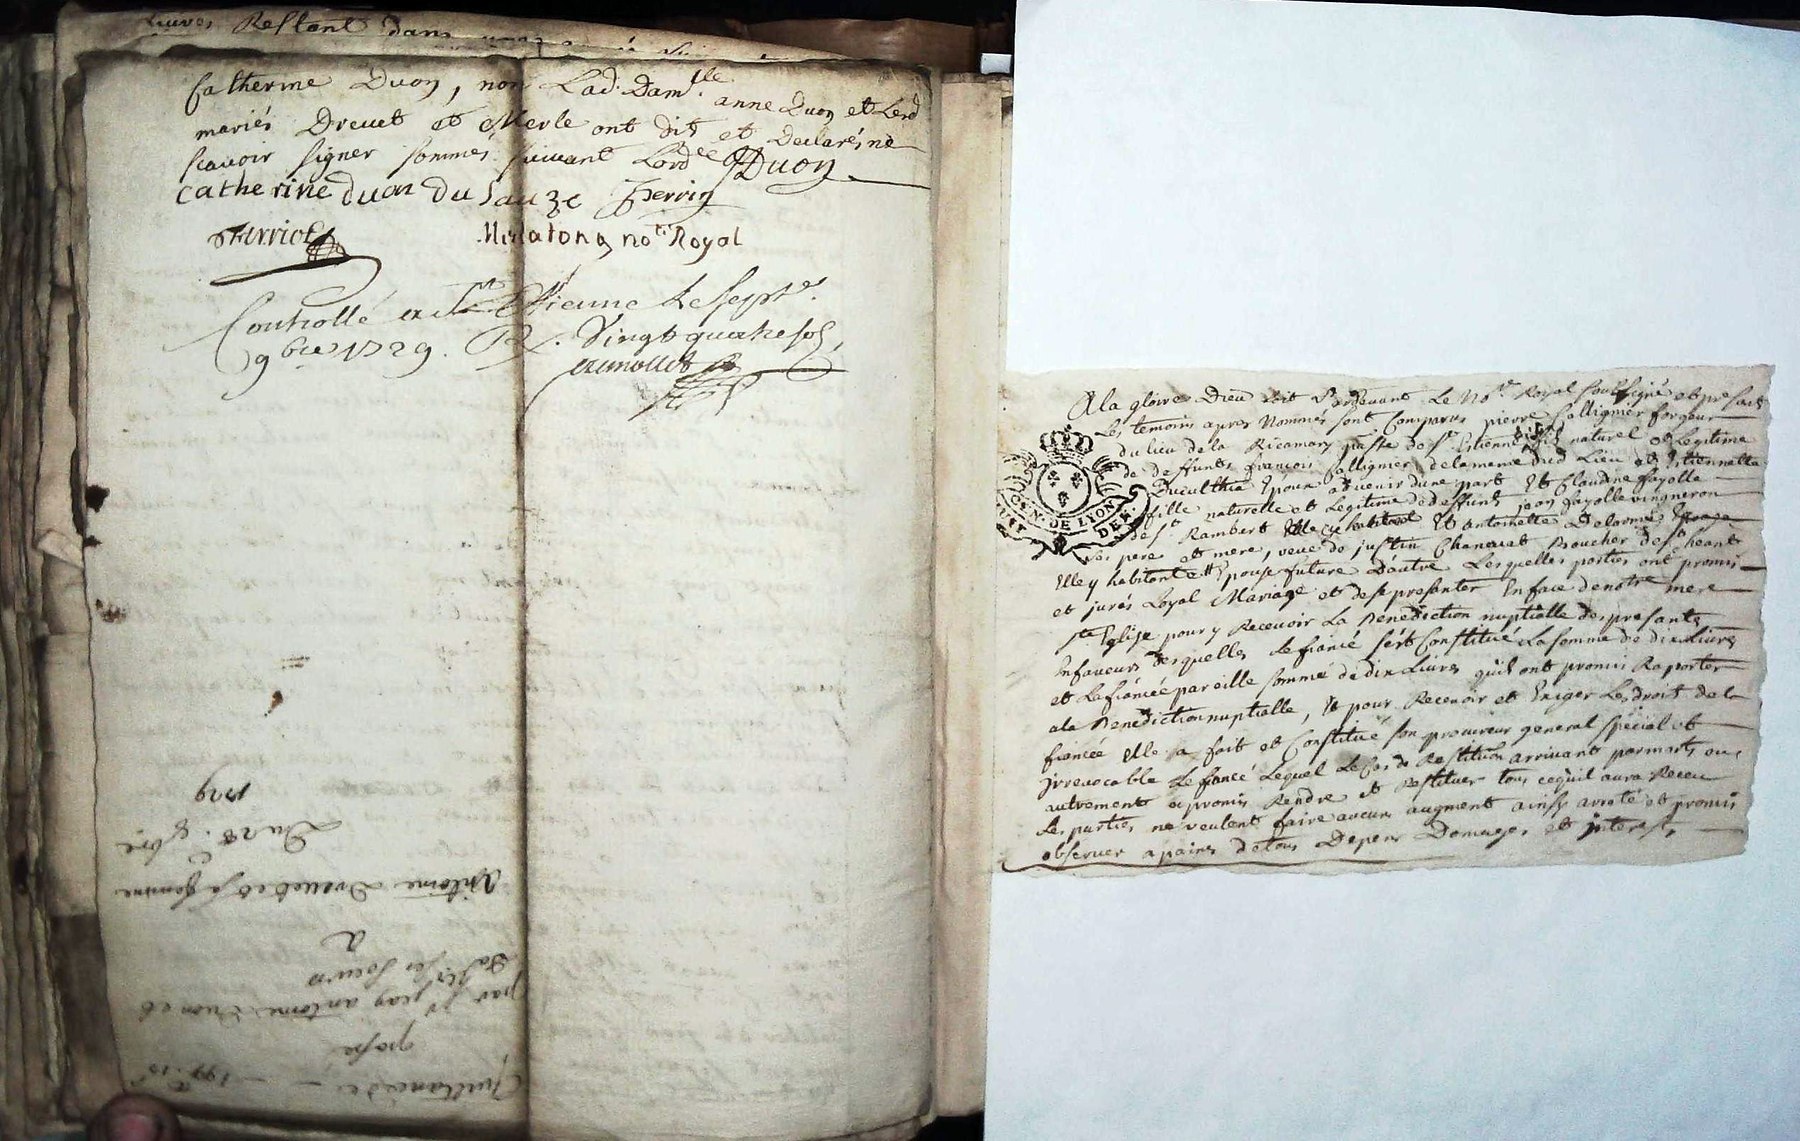 Livres Restant dans
Catherine Duon, non Lad. Dam.lle anne Duon et Lesd
mariés Drevet et Merle ont dit et Declarés ne
scavoir signer sommés suivant Lord.ce Duon
catherine duon du sauze Thervin
Ferriol
Mislatong no.re Royal
Controllé a St. Etienne Le sept.e
9bre 1729. R. Vingt quatre sols,
Quittance de — 199 . 10
passé
par Sr jean antoine Duon et
ses soeurs
a
Antoine Drevet et sa femme
Du 28.e 8bre
1729
A la gloire de Dieu soit Pardevant Le No.re Royal soussigné et presants
Les temoins apres Nommés sont Comparus pierre Fallignier forgeur
du lieu de la Ricamary p.sse de St. Estienne fils naturel et Legitime
de deffunts françois Fallignier de la meme dud Lieu et Estiennette
Epoux advenir dune part Et Claudine fayolle
fille naturelle et Legitime de deffunt jean fayolle vingneron
de St. Rambert Et antoinette Delorme
ses pere et mere, veuve de justin Chanavat Boucher de St. heant
Elle y habitante Epouse future Dautre Lesquelles parties ont promis
et jurés Loyal Mariage et de se presenter En face de notre mere
Ste Eglise pour y Recevoir La Benediction nuptialle des presants
En faveurs desquelles Le fiancé sest Constitué La somme de dix Livres
et La fiancée pareille somme de dix Livres quils ont promis Raporter
a la Benediction nuptialle, Et pour Recevoir et Exiger Les droit de la
fiancée Elle a fait et Constitué son procureur general special et
Irrevocable Le fiancé Lequel Le Cas de Restitution arrivant par mort ou
autrement a promis Rendre et Restituer tous cequil aura Receu
Les parties ne veulent faire aucun augment ainsy arreté et promis
observer a paines de tous Depens Domages et interests
GEN. DE LYON